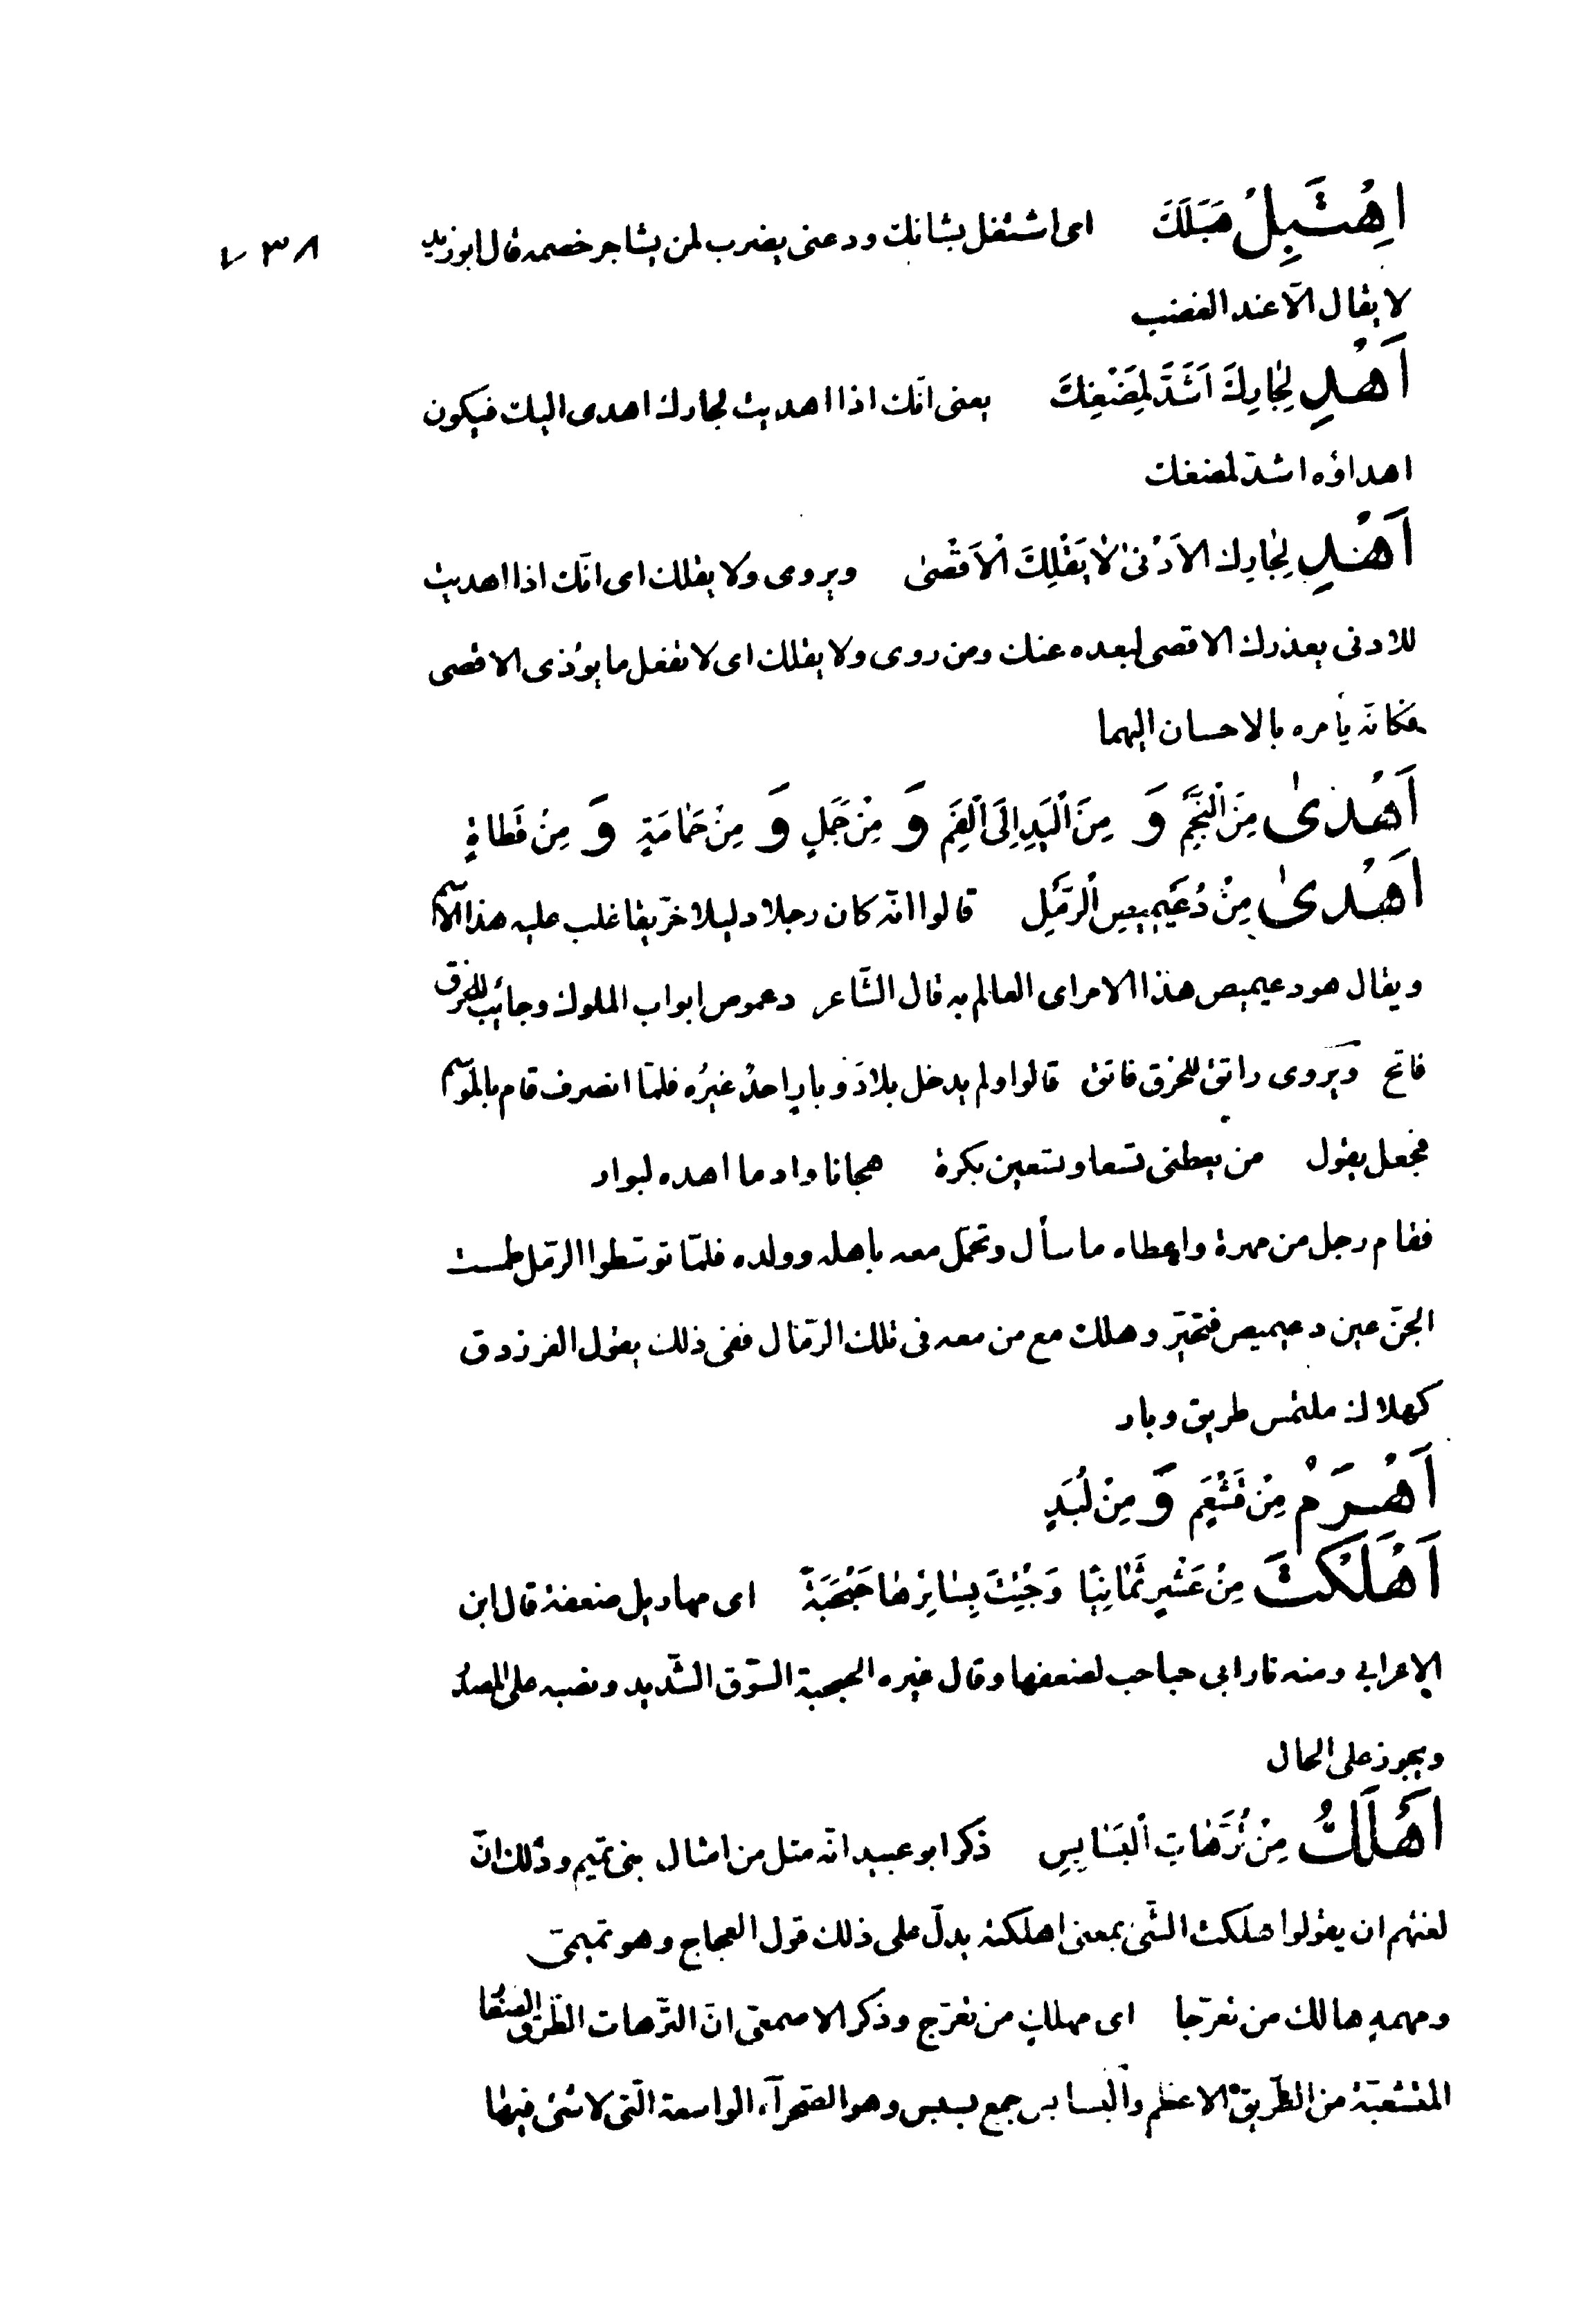 اِهْتَبِلْ هَبَلَكَ اى اشتغل بشانك ودعنى يضرب لمن يشاجر خصمه قال ابوزيد
٧٣٨
لا يقال الّا عند الغضب
اَهْدِ لِجَارِكَ اَشَدَّ لِمَضْغِكَ يعنى انّك اذا اهديت لجارك اهدى اليك فيكون
اهداؤه اشدّ لمضغك
اَهْدِ لِجَارِكَ الاَدْنىٰ لاٰ يَقْلِكَ الْاَقْصٰى ويروى ولا يقلك اى انّك اذا اهديت
للادنى يعذرك الاقصى لبعده عنك ومن روى ولا يقلك اى لا تفعل ما يؤذى الاقصى
فكانّه يأمره بالاحسان اليهما
اَهْدىٰ مِنَ الْنَجْمِ وَ مِنَ اْليَدِ اِلَى اْلفَمِ وَ مِنْ جَمَلٍ وَ مِنْ حَمٰامَةٍ وَ مِنْ قَطَاةٍ
اَهْدىٰ مِنْ دُعَيْمِيصِ اْلرَمْلِ قالوا انّه كان رجلا دليلا خرّيتا غلب عليه هذا الاسم
ويقال هو دعيميص هذا الامر اى العالم به قال الشّاعر دعموص ابواب الملوك وجائب للخرق
فاتح وَيروى راتق للخرق فاتق قالوا ولم يدخل بلادَ وبارِ احدٌ غيرُه فلمّا انصرف قام بالموسم
فجعل يقول من يعطنى تسعا وتسعين بكرة هجانا وادما اهده لبوار
فقام رجل من مهرة واعطاه ما سأل وتحمّل معه باهله وولده فلمّا توسّطوا الرّمل طمست
الجنّ عين دعيميص فتحيّر وهلك مع من معه فى تلك الرّمال ففى ذلك يقول الفرزدق
كهلاك ملتمس طريق وبار
اَهْرَمُ مِنْ قَشْعَمٍ وَ مِنْ لُبَدٍ
اَهْلَكْتَ مِنْ عَشْرٍ ثَمٰانِيًا وَجِئْتَ بِسٰائِرِهٰا حَبْحَبَةً اى مهازيل ضعيفة قال ابن
الاعرابى ومنه نار ابى حباحب لضعفها وقال غيره الحبحبة السّوق الشّديد ونصبه على المصدر
ويجوز على الحال
اَهْلَكُ مِنْ تُرَّهٰاتِ اْلبَسٰابِسِ ذَكر ابو عبيد انّه مثل من امثال بنى تميم وذلك انّ
لغتهم ان يقولوا هلكت الشّئ بمعنى اهلكته يدلّ على ذلك قول العجاج وهو تميمىّ
ومهمهٍ هالك من تعرّجا اى مهلك من تعرّج وذكر الاصمعىّ انّ التّرّهات الطّرق الصّغار
المتشعّبة من الطّريق الاعظم والبسابس جمع بسبس وهو الصّحرآء الواسعة الّتى لا شئ فيها